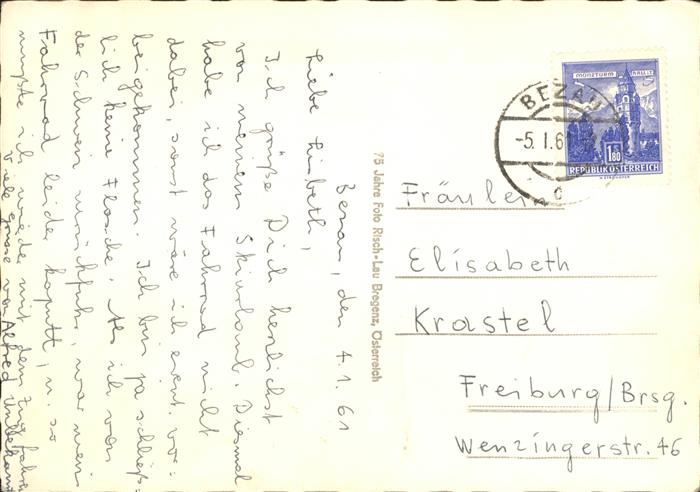 Bezau, den 4.1.61
Liebe Lisbeth,
Ich grüße Dich herzlichst
von meinem Skiurlaub. Diesmal
habe ich das Fahrrad nicht
dabei, sonst wäre ich event. vor-
beigekommen. Ich bin ja schließ-
lich keine Flasche. Als ich von
der Schweiz zurückfuhr, war mein
Fahrrad leider kaputt, u. so
mußte ich wieder mit dem Zug fahren
Viele Grüsse von Alfred
75 Jahre Foto Risch-Lau Bregenz, Österreich
MÜNZTURM HALL I.T.
1.80
REPUBLIK ÖSTERREICH
BEZAU
-5. I. 6
Fräulein
Elisabeth
Krastel
Freiburg/Brsg.
Wenzingerstr. 46